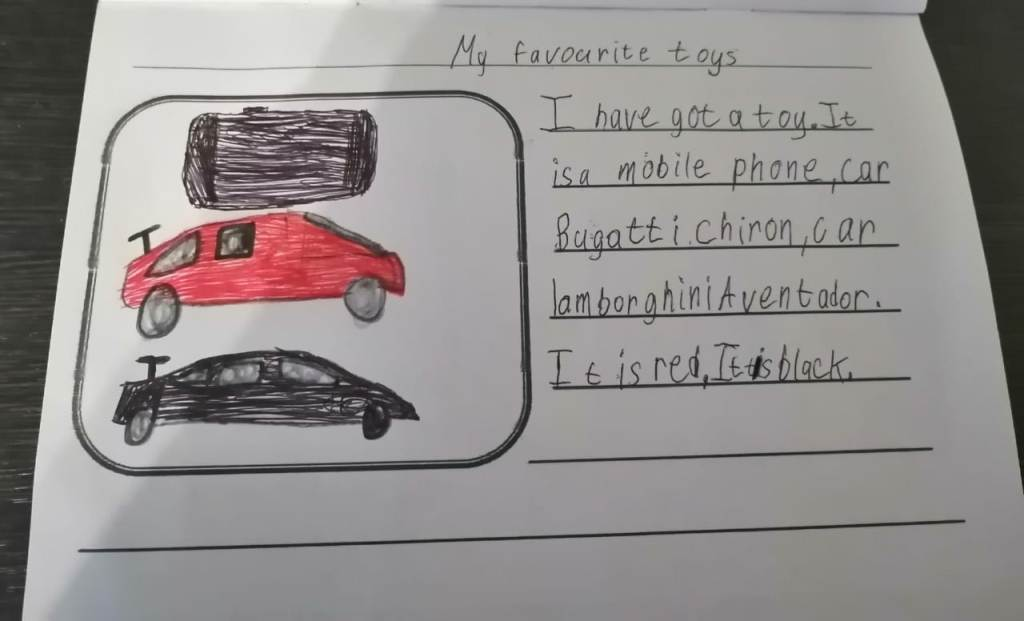 My favourite toys
I have got a toy. It
is a mobile phone, car
Bugatti chiron, car
lamborghini Aventador.
It is red, It is black.